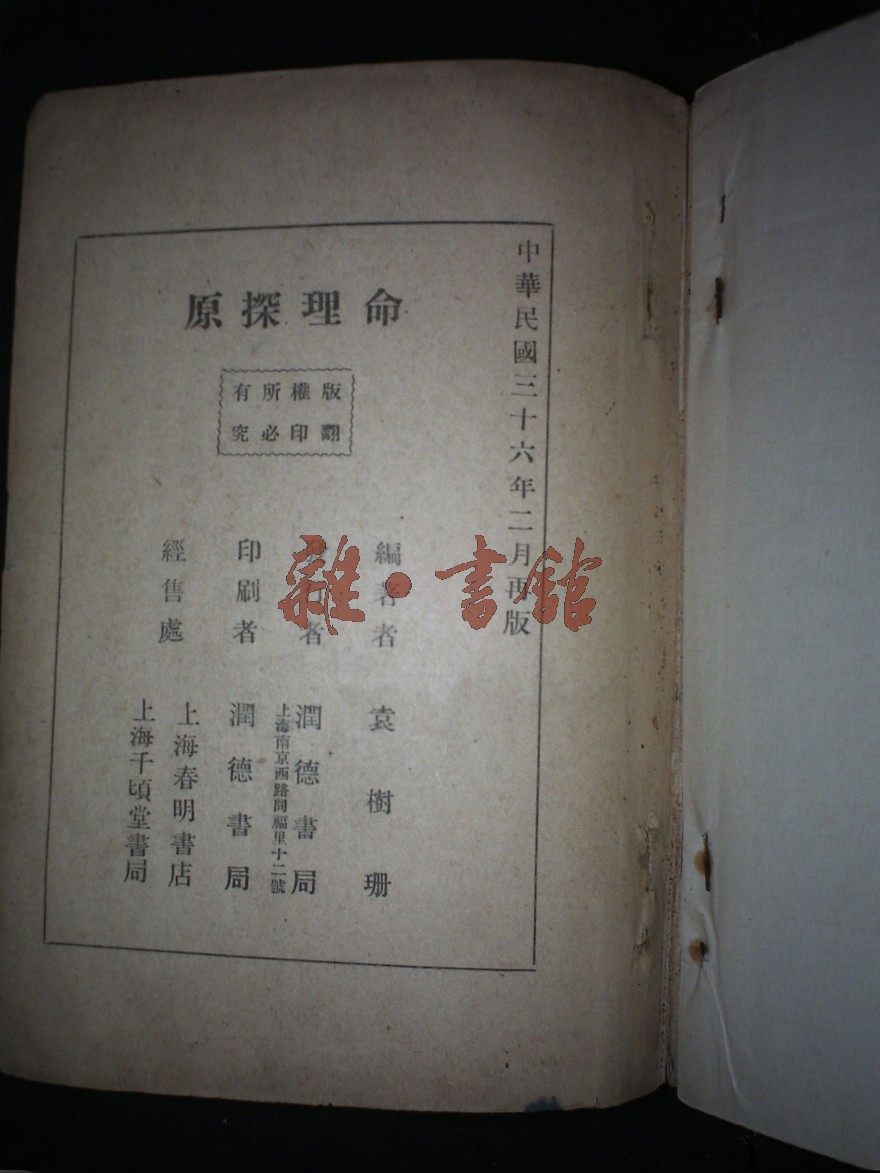 中華民國三十六年二月再版
命理探原
版權所有
翻印必究
編著者 袁樹珊
發行者 潤德書局
上海南京西路同福里十二號
印刷者 潤德書局
經售處 上海春明書店
上海千頃堂書局
雜·書館